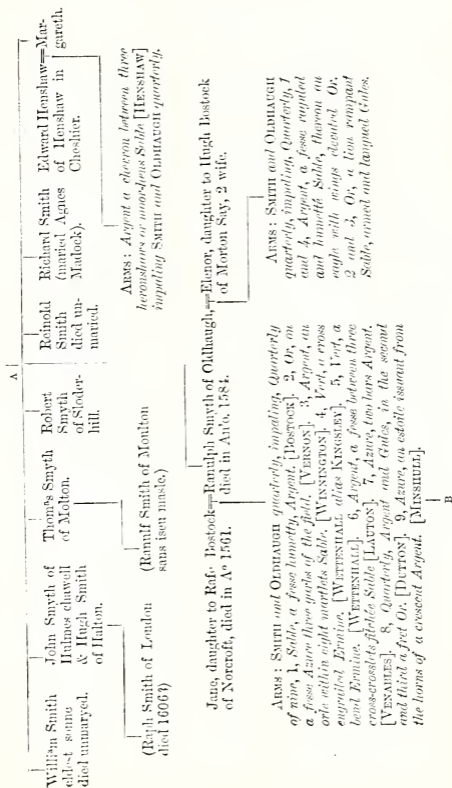 A
William Smith
eldest sonne
died unmaryed.
John Smyth of
Hulmes chawell
& Hugh Smith
of Halton.
Thomas Smyth
of Molton.
Robert
Smyth
of Sloder-
hill.
Reinold
Smith
died un-
maried.
Richard Smith
(maried Agnes
Matock).
Edward Henshaw=Mar-
of Henshaw in gareth.
Cheshier.
(Raph Smith of London
died 1606?)
(Romulf Smith of Moulton
sans iseu masle.)
ARMS: Argent a chevron between three
heronshaws or moor-hens Sable [HENSHAW]
impaling SMITH and OLDHAUGH quarterly.
Jane, daughter to Rafe Bostock=Ranulph Smyth of Oldhaugh,=Elenor, daughter to Hugh Bostock
of Norcroft, died in Ao 1561. died in An'o. 1584. of Morton Say, 2 wife.
ARMS: SMITH and OLDHAUGH quarterly, impaling, Quarterly
of nine, 1, Sable, a fesse humetty, Argent. [BOSTOCK]. 2, Or, on
a fesse Azure three garbs of the field. [VERNON]. 3, Argent, an
orle within eight martlets Sable. [WINNINGTON]. 4, Vert, a cross
engrailed Ermine. [WETTENHALL alias KINGSLEY]. 5, Vert, a
bend Ermine. [WETTENHALL]. 6, Argent, a fesse between three
cross-crosslets fitchée Sable [LAUTON]. 7, Azure, two bars Argent.
[VENABLES]. 8, Quarterly, Argent and Gules, in the second
and third a fret Or. [DUTTON]. 9, Azure, an estoile issuant from
the horns of a crescent Argent. [MINSHULL].
ARMS: SMITH and OLDHAUGH
quarterly, impaling, Quarterly, 1
and 4, Argent, a fesse raguled
and humetté Sable, thereon an
eagle with wings elevated Or.
2 and 3, Or, a lion rampant
Sable, armed and langued Gules.
B